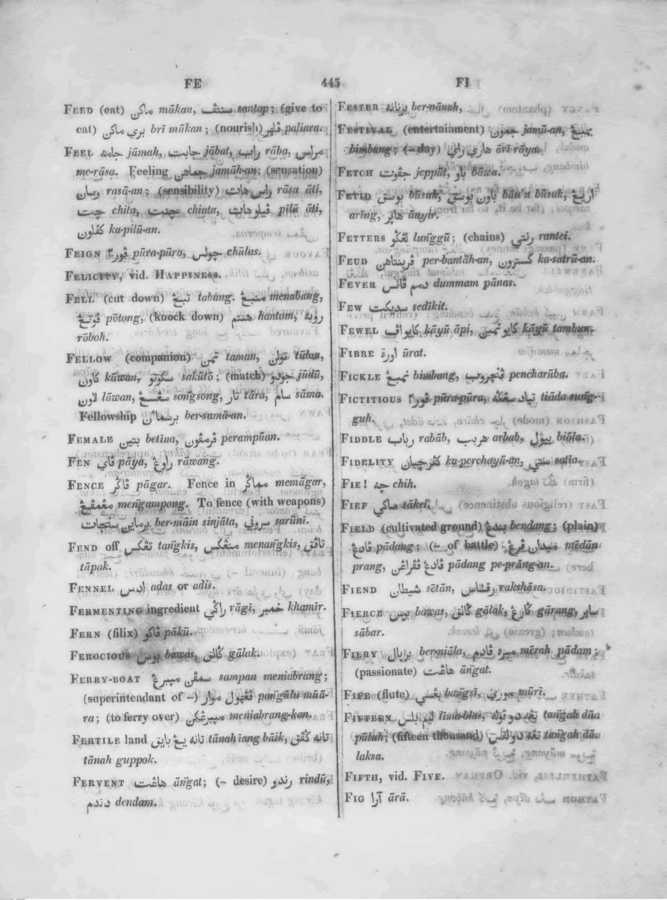 FE 445 FI
FEED (eat) ماكن mākan, سنتف santap; (give to
eat) بري ماكن bri mākan; (nourish) paliara.
FEEL جامه jāmah, جابت jābat, راب rāba, مراس
me-rāsa. Feeling jamāh-an; (sensation)
رسان rasā-an; (sensibility) راس هات rāsa āti,
چيت chita, چينت chinta, فيلوهات pilū āti,
كفلون ka-pilū-an.
FEIGN pūra-pūra, چولس chūlas.
FELICITY, vid. HAPPINESS.
FELL (cut down) تبڠ tabang, منبڠ menabang,
فوتڠ pōtong, (knock down) هنتم hantam, روبه
rōboh.
FELLOW (companion) تمن taman, تولن tūlan,
كاون kāwan, سكوتو sakūtō; (match) جودو jūdū,
لاون lāwan, song'song, تار tāra, سام sāma.
Fellowship برسمان ber-samā-an.
FEMALE بتين betina, فرمفون perampūan.
FEN فاي pāya, راوڠ rāwang.
FENCE فاڬر pāgar. Fence in مماڬر memāgar,
meng'ampong. To fence (with weapons)
برماين سنجات ber-māin sinjāta, سروني sarūni.
FEND off تڠكس tang'kis, منڠكس menang'kis, تافق
tāpak.
FENNEL ادس adas or adis.
FERMENTING ingredient راڬي rāgi, خمير khamīr.
FERN (filix) فاكو pākū.
FEROCIOUS بوس bawas, ڬالق gālak.
FERRY-BOAT سمفن مبرڠ sampan meniabrang;
(superintendant of –) pang'ūlu mūā-
ra; (to ferry over) meniabrang-kan.
FERTILE land تانه يڠ بايق tānah iang bāik, تانه ڬفق
tānah guppok.
FERVENT هاڠت āng'at; (– desire) رندو rindū,
دندم dendam.
FESTER برنانه ber-nānah,
FESTIVAL (entertainment) جموون jamū-an, بمبڠ
bimbang; (– day) هاري راي āri rāya.
FETCH جفوت jeppūt, باو bāwa.
FETID بوسق būsuk, باون بوسق bāu'a būsuk,
āring, هاير ānyir.
FETTERS بلڠڬو lung'gū; (chains) رنتي rantei.
FEUD per-bantāh-an, ka-satrū-an.
FEVER دمم فانس dummam pānas.
FEW سديكت sedikit.
FEWEL كايو اف kāyū āpi, كايو تمبن kāyū tambun.
FIBRE اورة ūrat.
FICKLE بمبڠ bimbang, pencharūba.
FICTITIOUS pūra-pūra, تياد سڠڬه tiāda sung-
guh.
FIDDLE رباب rabāb, هربب arbab, بيول biōla.
FIDELITY ka-perchayū-an, ستي satia.
FIE! چه chih.
FIEF ساكي sākei.
FIELD (cultivated ground) بندڠ bendang; (plain)
فادڠ pādang; (– of battle) ميدان فرڠ mēdān
prang, فادڠ ففراڠن pādang pe-prāng-an.
FIEND شيطان sētān, رقشاس rakshāsa.
FIERCE بوس bawas, ڬالق gālak, ڬارڠ gārang, سابر
sābar.
FIERY برپال ber-niāla, ميره فادم mērah pādam;
(passionate) هاڠت āng'at.
FIFE (flute) بڠسي bang'si, موري mūri.
FIFTEEN ليم بلس lima-blas, تڠه دو فوله tang'ah dūa
pūluh; (fifteen thousand) تڠه دو لقس tang'ah dūa
laksa.
FIFTH, vid. FIVE.
FIG آرا ārā.